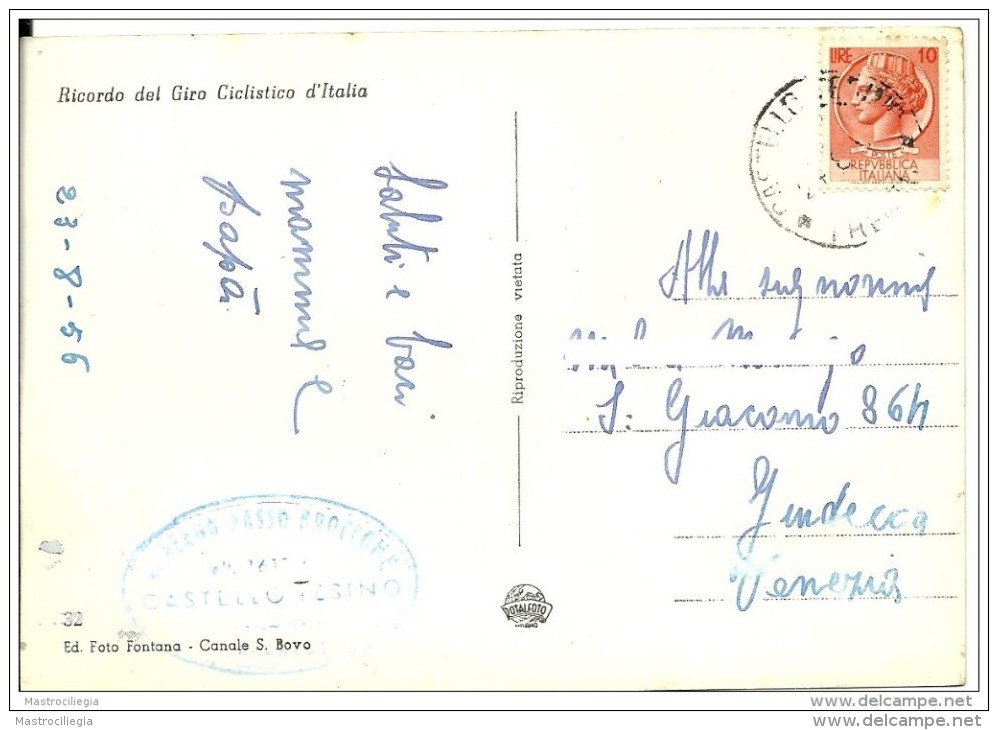 Ricordo del Giro Ciclistico d'Italia
LIRE 10
POSTE
REPVBBLICA
ITALIANA
CASTELLO TESINO
Saluti e baci
mamma e
papà
23-8-56
Riproduzione vietata
Alla
S. Giacomo 864
Giudecca
Venezia
PASSO BROCCONE
CASTELLO TESINO
ROTALFOTO
32
Ed. Foto Fontana - Canale S. Bovo
Mastrociliegia
www.delcampe.net
Mastrociliegia
www.delcampe.net